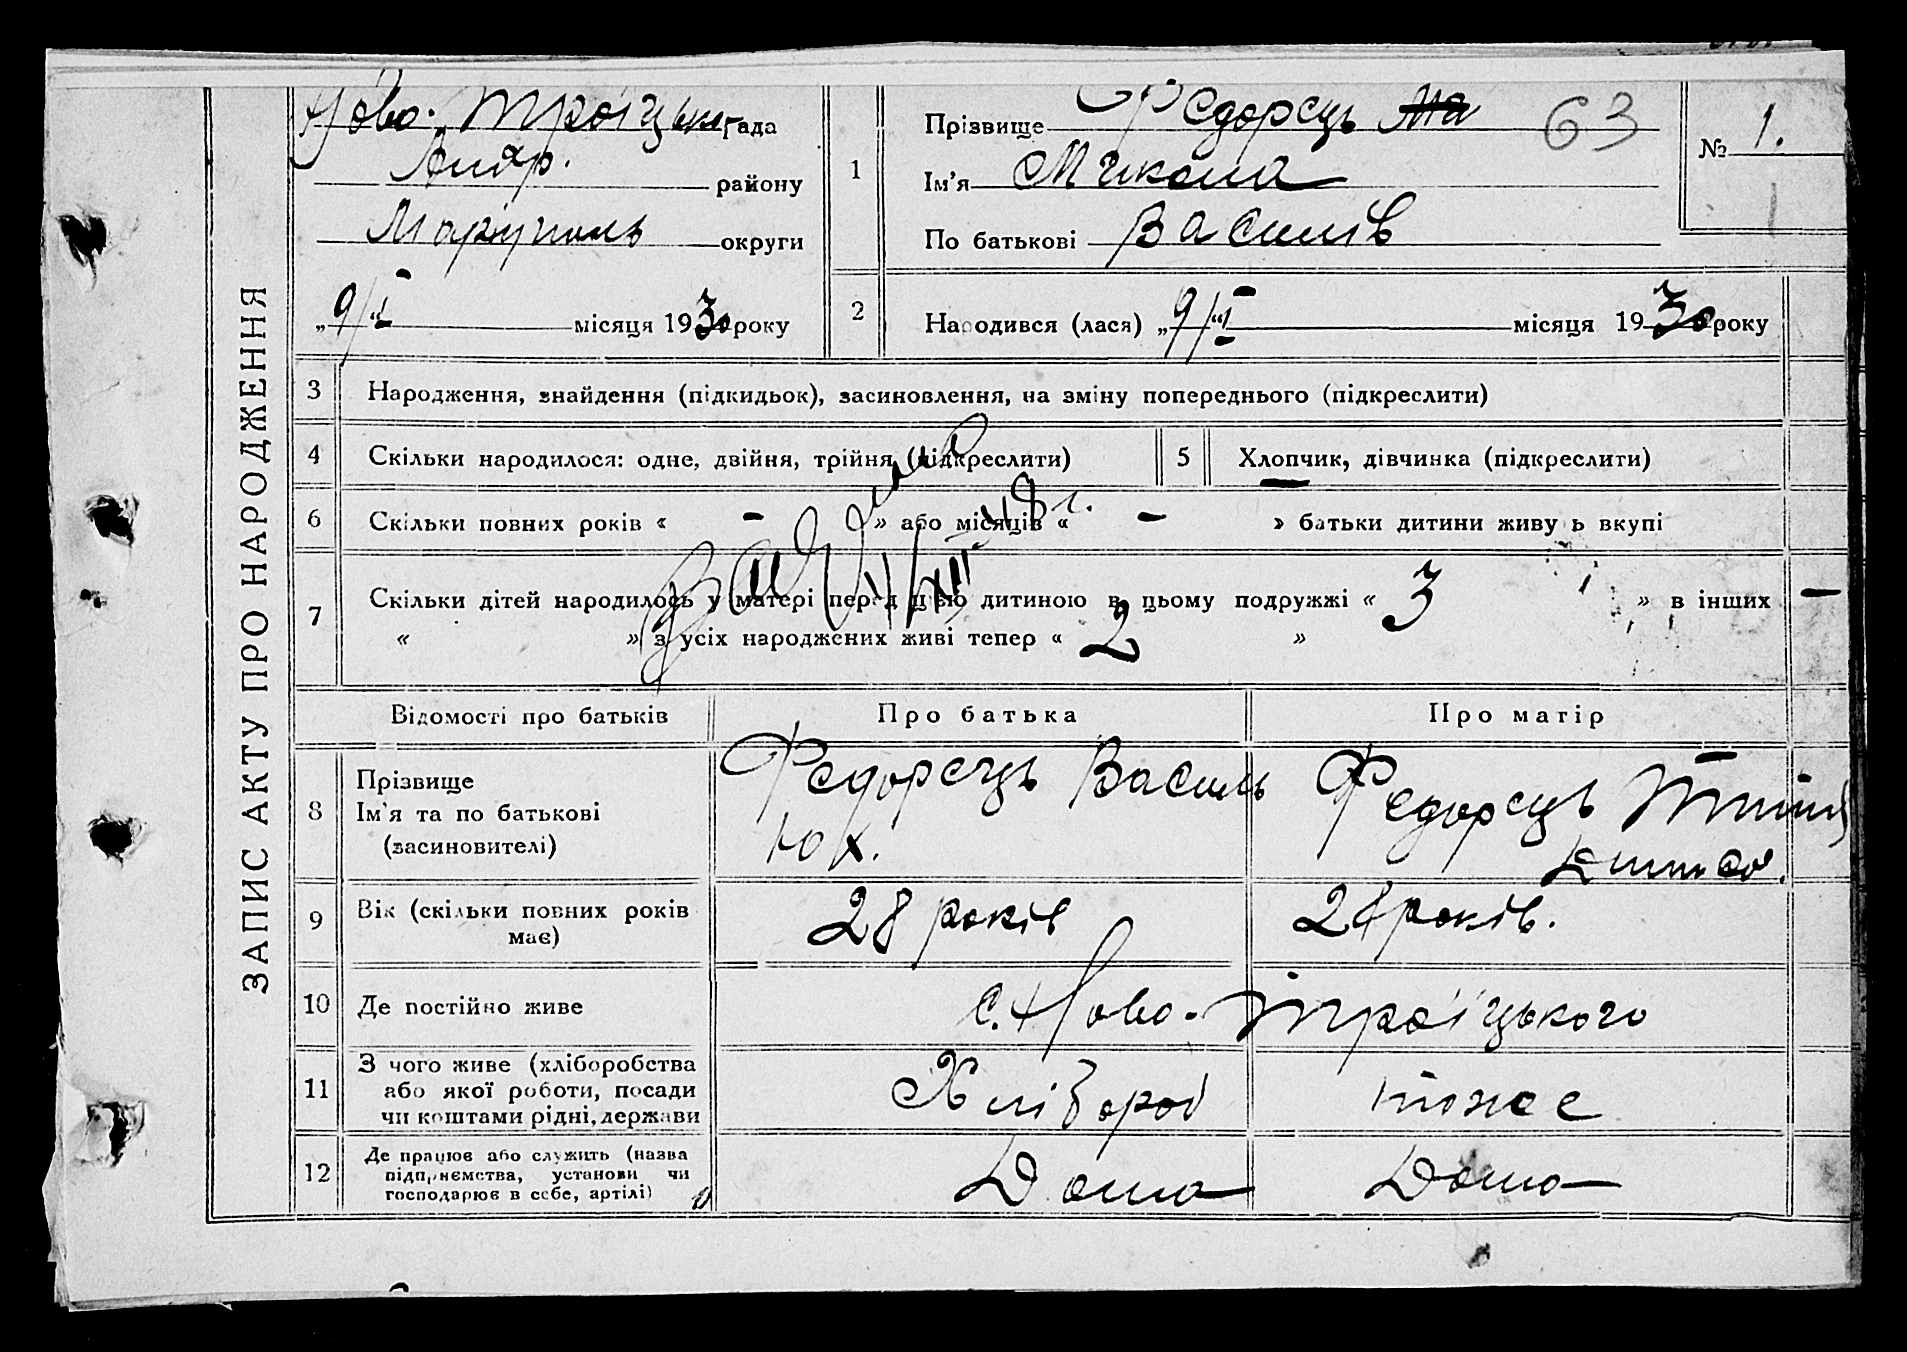 ЗАПИС АКТУ ПРО НАРОДЖЕННЯ
Ново-Троїцька рада
району
Маріуполь округи
„9/I“ місяця 1930 року
1
Прізвище Федорець
63
Ім’я Микола
По батькові Василів
№ 1.
2
Народився (лася) „9/I“ місяця 1930 року
3 Народження, знайдення (підкидьок), засиновлення, на зміну попереднього (підкреслити)
4 Скільки народилося: одне, двійня, трійня (підкреслити)
5 Хлопчик, дівчинка (підкреслити)
6 Скільки повних років « – » або місяців « – » батьки дитини живуть вкупі
7 Скільки дітей народилось у матері перед цією дитиною в цьому подружжі « 3 » в інших –
« » з усіх народжених живі тепер « 2 »
Відомості про батьків Про батька Про матір
8 Прізвище
Ім’я та по батькові
(засновителі)
Федорець Василь
Юх.
Федорець
9 Вік (скільки повних років
має)
28 років
років.
10 Де постійно живе
с. Ново-Троїцького
11 З чого живе (хліборобства
або якої роботи, посади
чи коштами рідні, держави
Хлібороб
тоже
12 Де працює або служить (назва
підприємства, установи чи
господарює в себе, артілі)
Дома
Дома